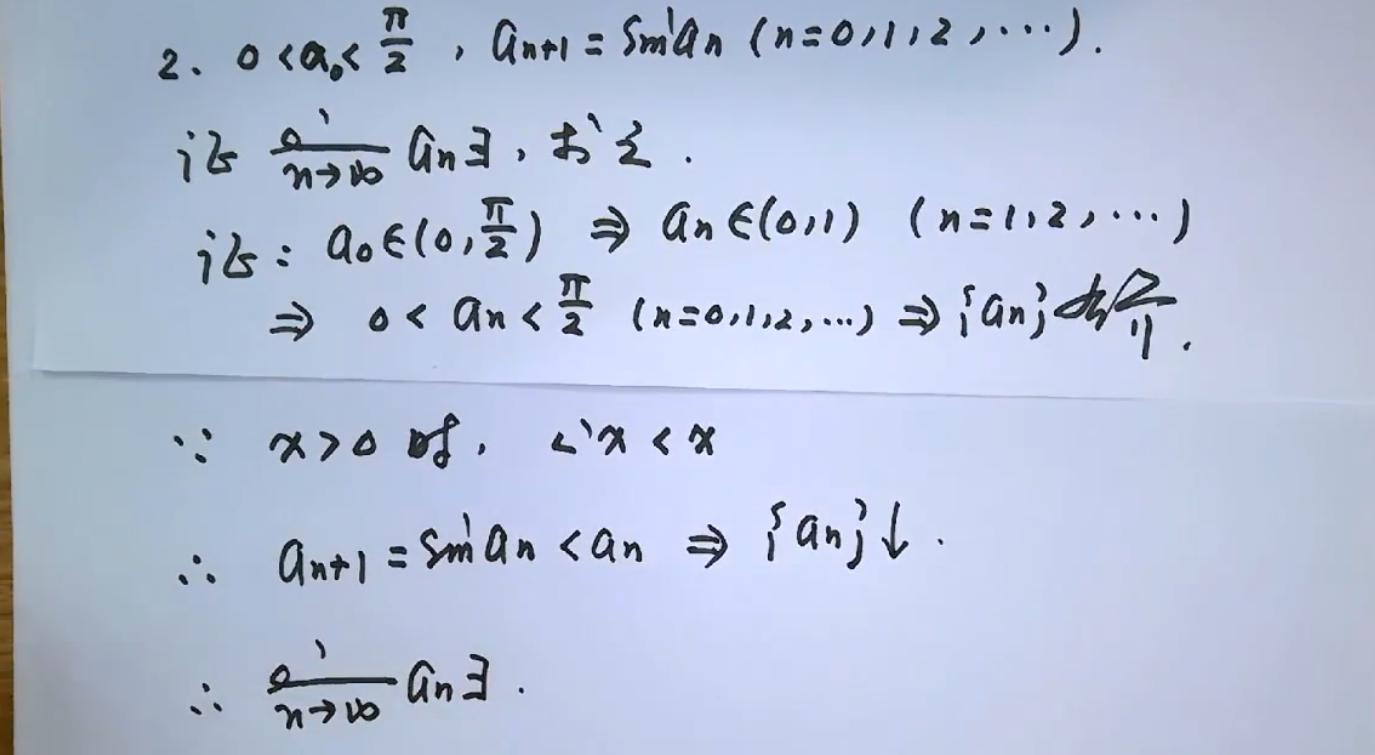 2. 0<a₀<π/2, aₙ₊₁=sin aₙ (n=0,1,2,⋯).
证 lim n→∞ aₙ∃, 求之.
证: a₀∈(0,π/2) ⇒ aₙ∈(0,1) (n=1,2,⋯)
⇒ 0<aₙ<π/2 (n=0,1,2,⋯) ⇒ {aₙ}有界.
∵ x>0时, sin x<x
∴ aₙ₊₁=sin aₙ<aₙ ⇒ {aₙ}↓.
∴ lim n→∞ aₙ∃.